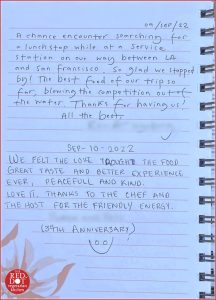 09/SEP/22
A chance encounter searching for
a lunch stop while at a service
station on our way between LA
and san fransisco. So glad we stopped
by! The best food of our trip so
far, blowing the competition out of
the water. Thanks for having us!
All the best.
SEP-10-2022
WE FELT THE LOVE THOUGHT THE FOOD
GREAT TASTE AND BETTER EXPERIENCE
EVER, PEACEFULL AND KIND.
LOVE IT. THANKS TO THE CHEF AND
THE HOST FOR THE FRIENDLY ENERGY.
(34TH ANNIVERSARY)
RED
HOT